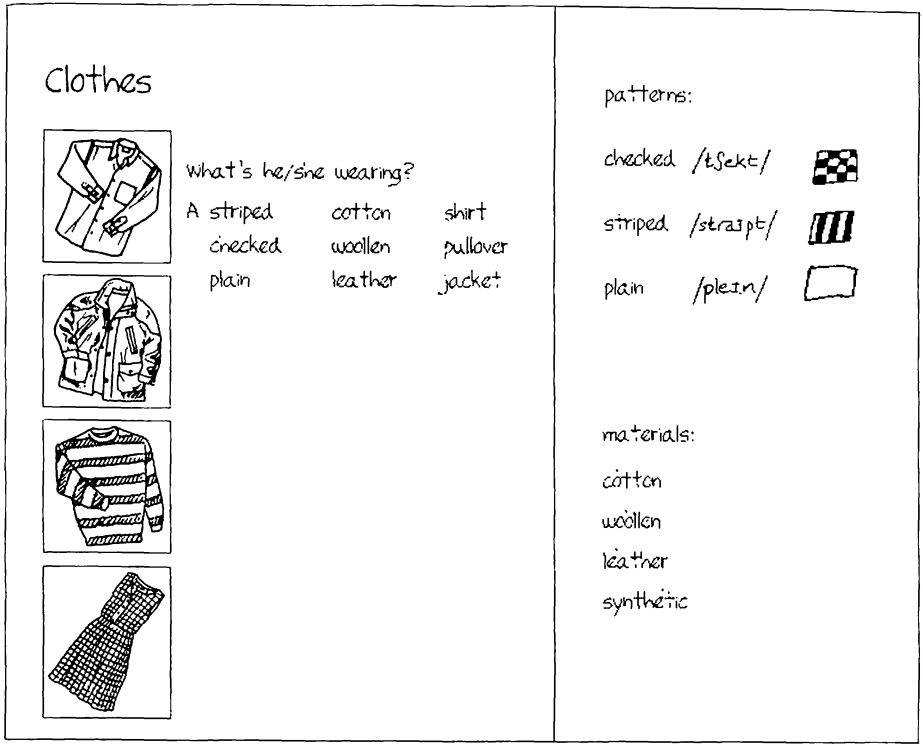 Clothes
What's he/she wearing?
A striped cotton shirt
checked woollen pullover
plain leather jacket
patterns:
checked /tʃekt/
striped /straɪpt/
plain /pleɪn/
materials:
cotton
woollen
leather
synthetic